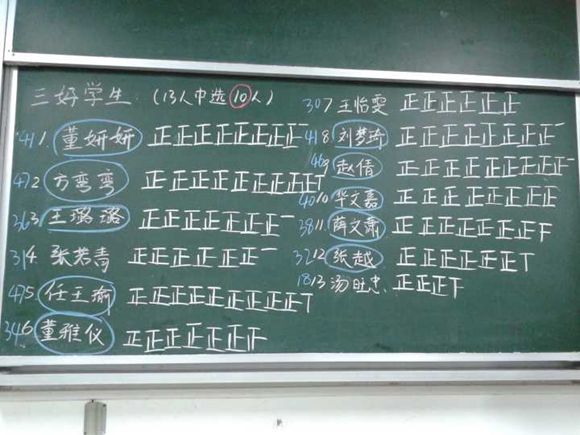 三好学生 (13人中选10人)
41 1 董妍妍 正正正正正正正正一
47 2 方弯弯 正正正正正正正正正丅
36 3 王璐璐 正正正正正正正一
31 4 张若青 正正正正正正一
47 5 任王瑜 正正正正正正正正正丅
34 6 董雅仪 正正正正正正
30 7 王怡雯 正正正正正正
41 8 刘梦琦 正正正正正正正正一
46 9 赵倩 正正正正正正正正正一
40 10 华文嘉 正正正正正正正正
38 11 薛文萧 正正正正正正正下
32 12 张越 正正正正正正丅
18 13 汤旺忠 正正正下